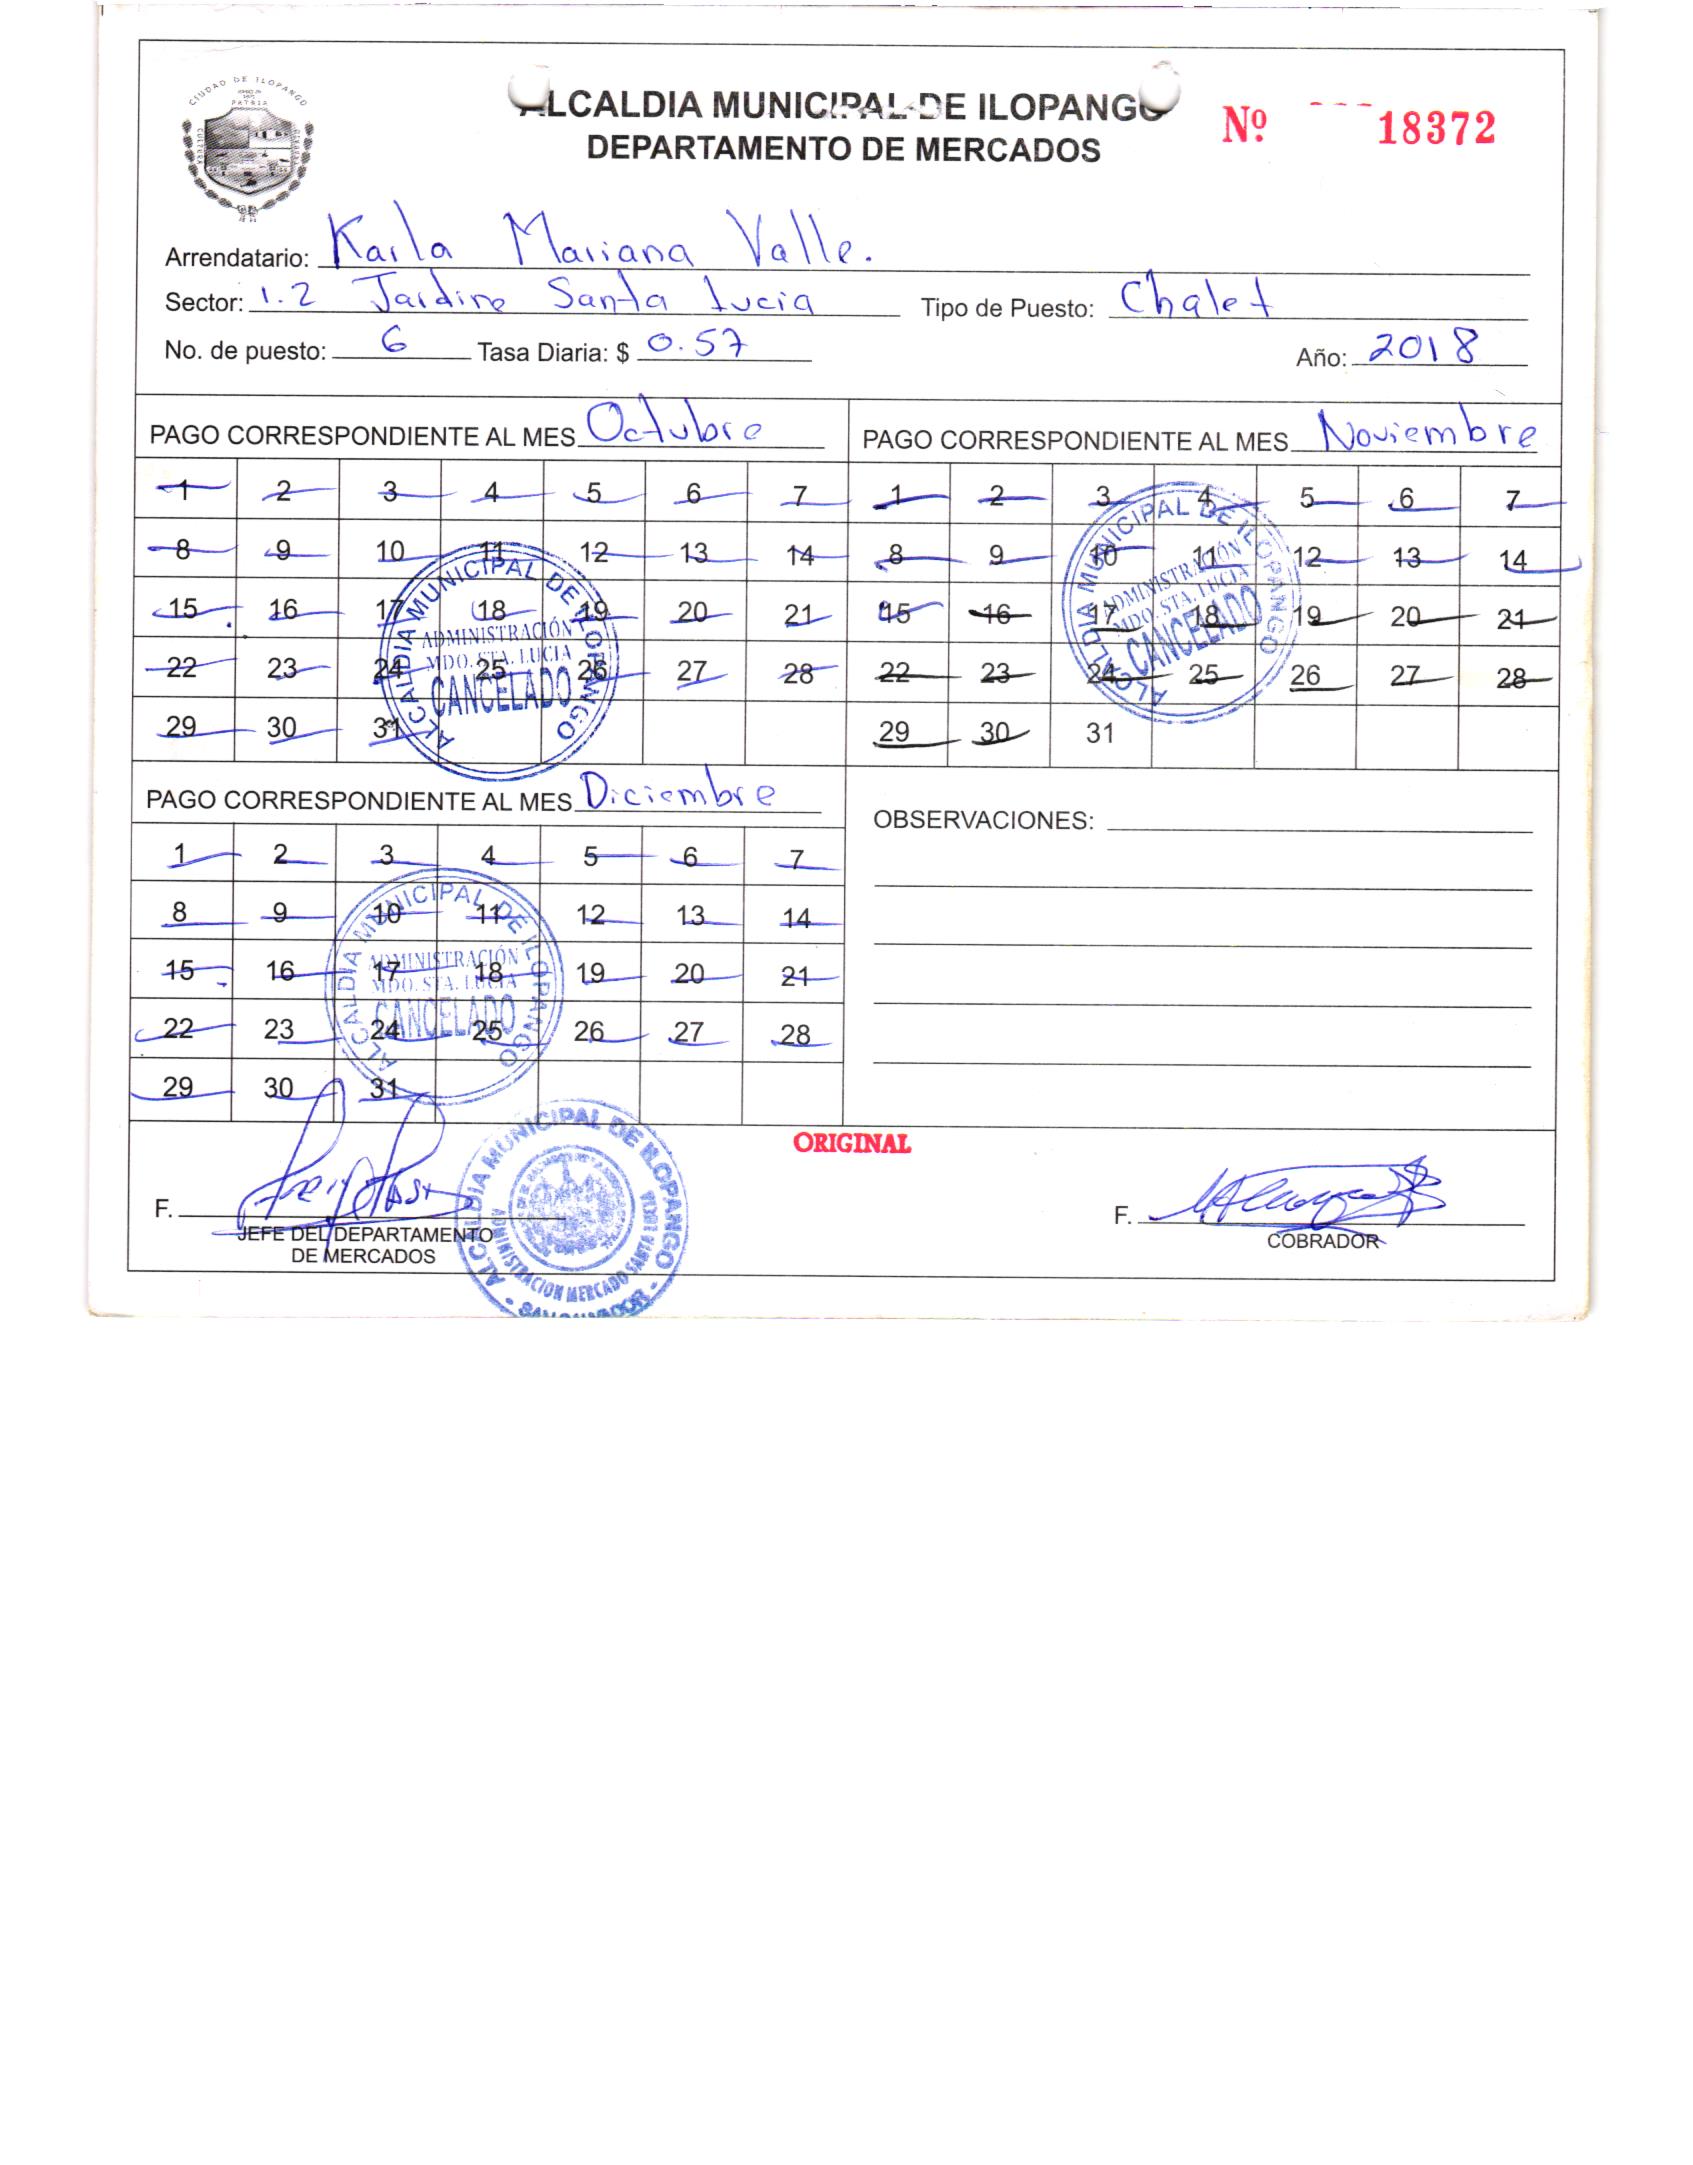 CIUDAD DE ILOPANGO
PATRIA
CULTURA
ALCALDIA MUNICIPAL DE ILOPANGO
DEPARTAMENTO DE MERCADOS
Nº 18372
Arrendatario: Karla Mariana Valle.
Sector: 1.2 Jardine Santa Lucia Tipo de Puesto: Chalet
No. de puesto: 6 Tasa Diaria: $ 0.57 Año: 2018
PAGO CORRESPONDIENTE AL MES Octubre
1 2 3 4 5 6 7
8 9 10 11 12 13 14
15 16 17 18 19 20 21
22 23 24 25 26 27 28
29 30 31
ALCALDIA MUNICIPAL DE ILOPANGO
ADMINISTRACIÓN
MDO. STA. LUCIA
CANCELADO
PAGO CORRESPONDIENTE AL MES Noviembre
1 2 3 4 5 6 7
8 9 10 11 12 13 14
15 16 17 18 19 20 21
22 23 24 25 26 27 28
29 30 31
ALCALDIA MUNICIPAL DE ILOPANGO
ADMINISTRACIÓN
MDO. STA. LUCIA
CANCELADO
PAGO CORRESPONDIENTE AL MES Diciembre
1 2 3 4 5 6 7
8 9 10 11 12 13 14
15 16 17 18 19 20 21
22 23 24 25 26 27 28
29 30 31
ALCALDIA MUNICIPAL DE ILOPANGO
ADMINISTRACIÓN
MDO. STA. LUCIA
CANCELADO
OBSERVACIONES:
ORIGINAL
F.
JEFE DEL DEPARTAMENTO
DE MERCADOS
ALCALDIA MUNICIPAL DE ILOPANGO
ADMINISTRACION MERCADO SANTA LUCIA
SAN SALVADOR
F.
COBRADOR